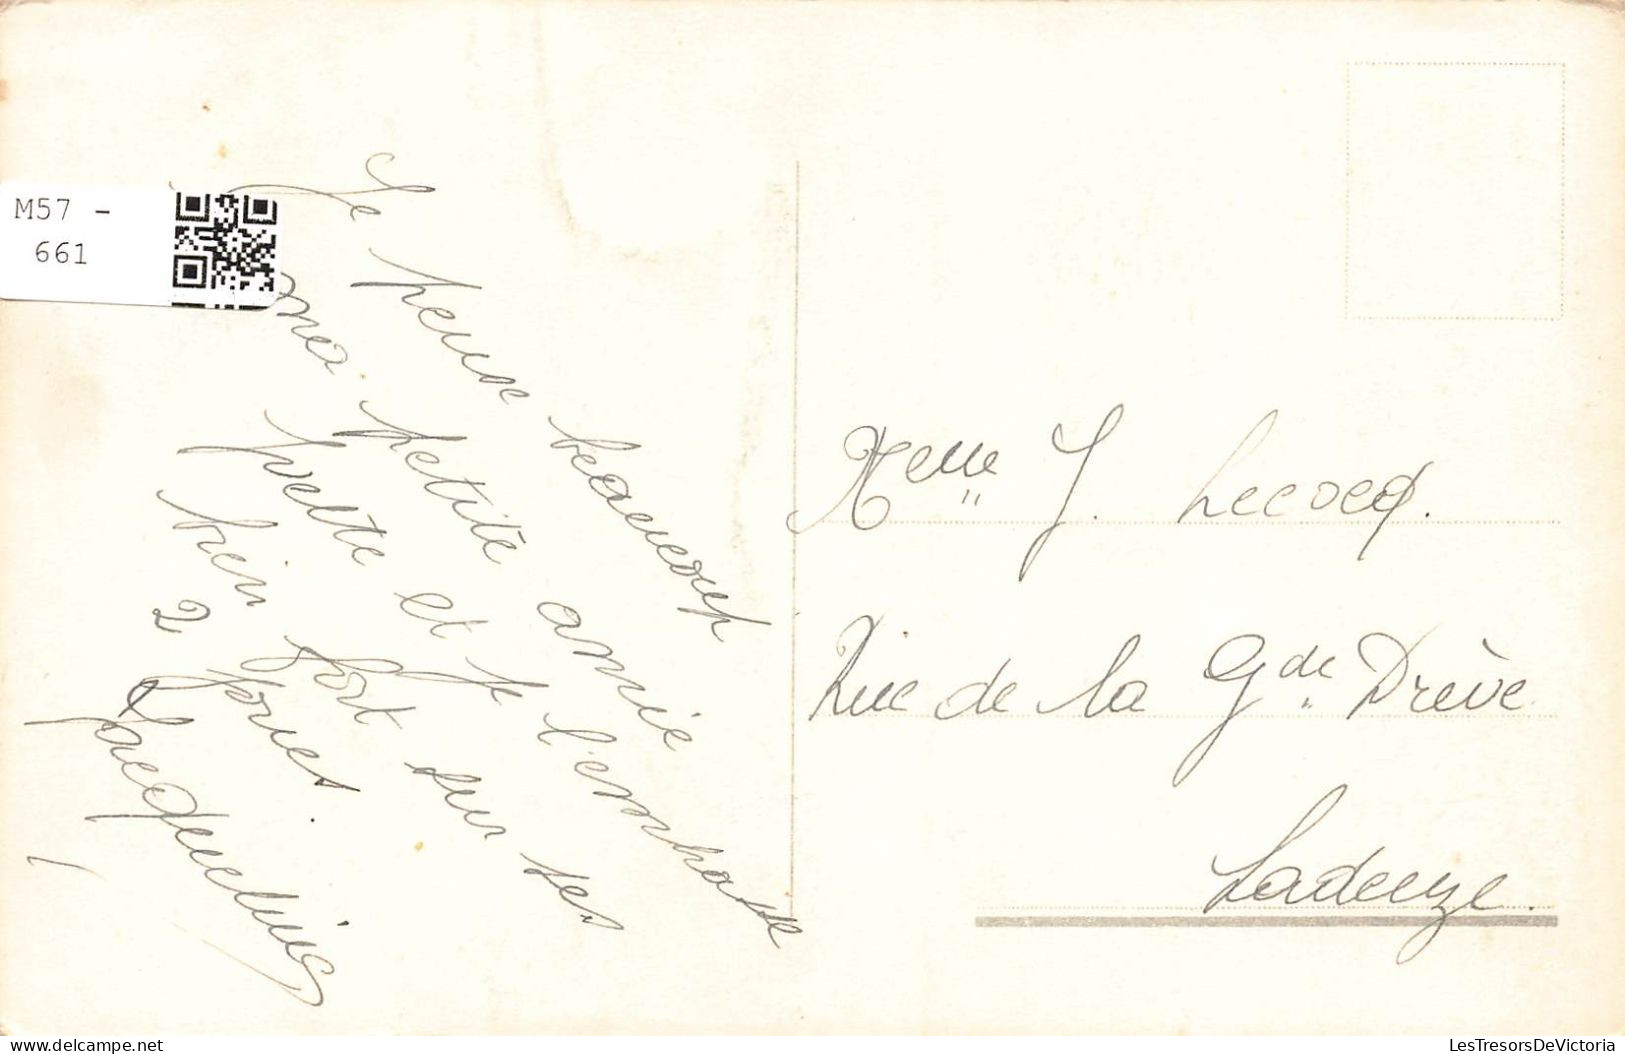 M57 -
661
Je pense beaucoup
ma petite amie
Yvette et je t'embrasse
bien fort sur tes
2 joues.
Jacqueline
Melle Y. Lecocq.
Rue de la Gde Drève
Ladeuze.
LesTresorsDeVictoria
delcampe.net